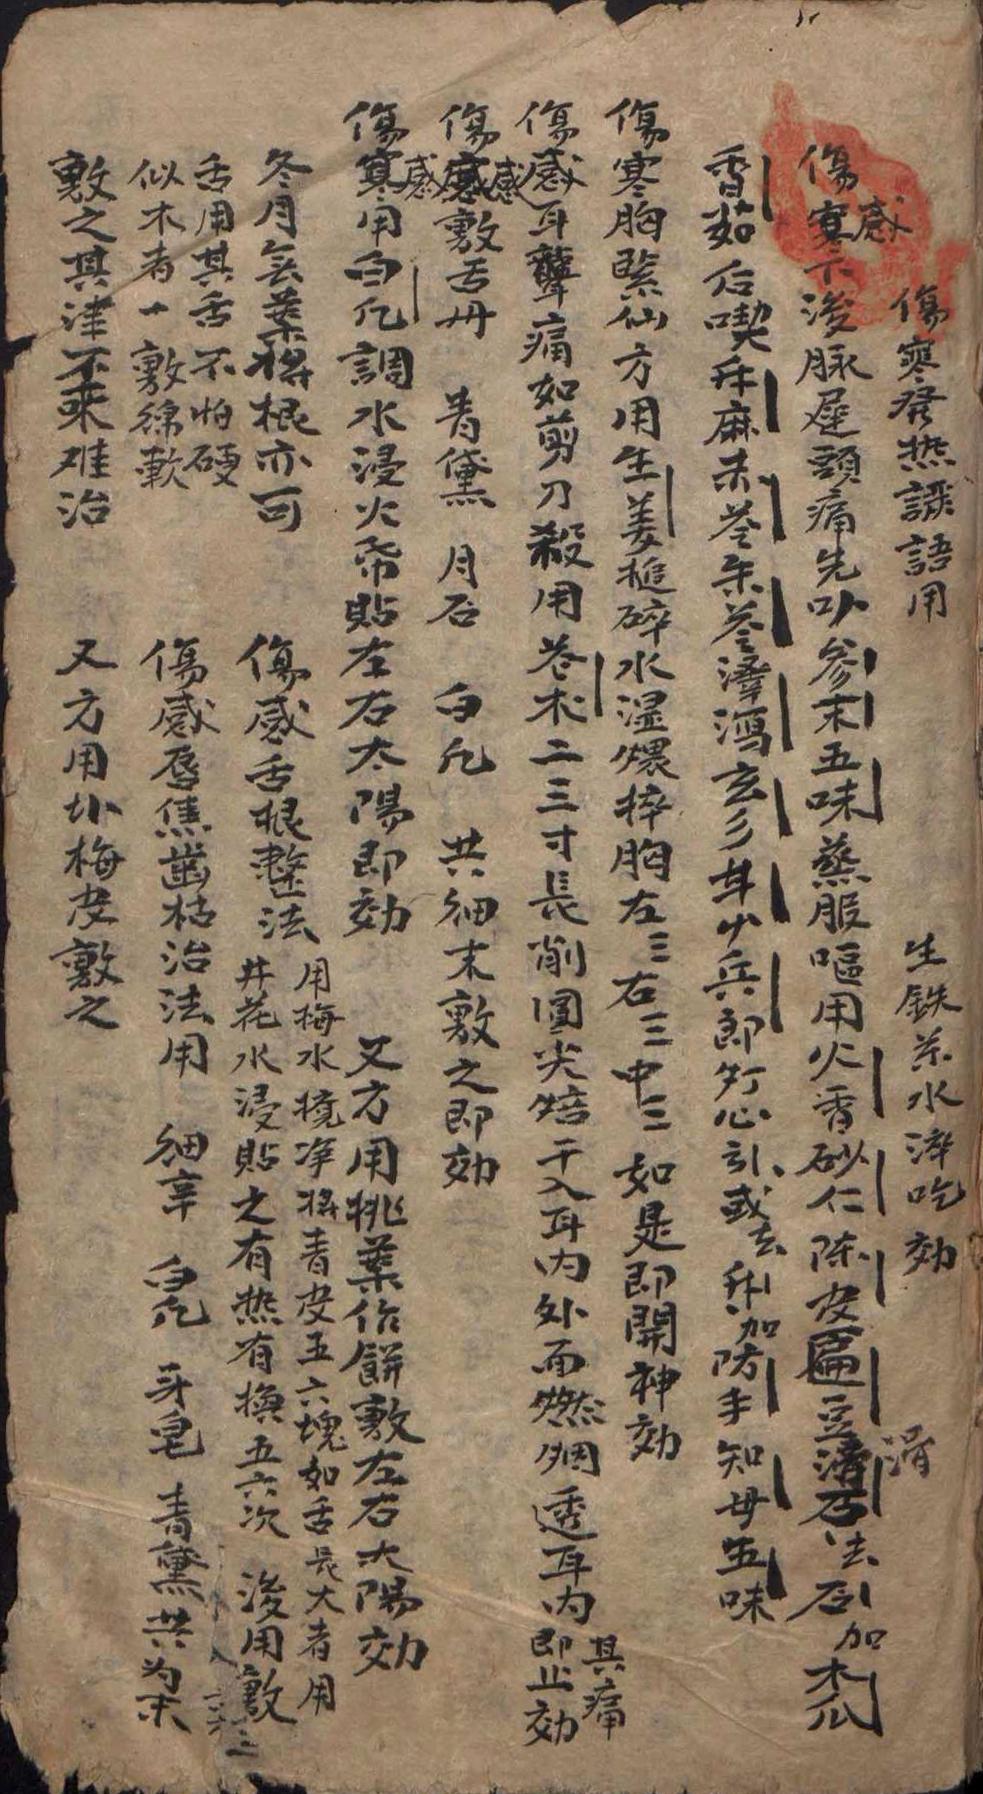 傷寒發熱譟語用　生鉄羕水淬吃効
傷寒感下後脉遲頭痛先以参末五味蒸服嘔用火香砂仁陈皮匾豆滑石法石加木瓜
香茹后喫升麻朱苓朱苓澤瀉玄彡甘少兵郎灯心引或去升加防手知母五味
傷寒胸緊仙方用生姜搥碎水湿煨捽胸左三右三中三如是即開神効
傷感耳聾痛如剪刀殺用苍术二三寸長削圓尖焙干入耳内外面燃烟透耳内其痛即止効
傷感敷舌丹　青黛　月石　白凡　共細末敷之即効
傷寒感用白凡調水浸火帋貼左右太陽即効　又方用桃葉作餅敷左右太陽効
冬月無葉將根亦可　傷感舌根整法
用梅水境净將青皮五六塊如舌長大者用
井花水浸貼之有热有換五六次　後用敷
舌用其舌不怕硬
似木者一敷綿軟
傷感唇焦齒枯治法用　細辛　白凡　牙皂　青黛共为末
敷之其津不來难治　又方用小梅皮敷之